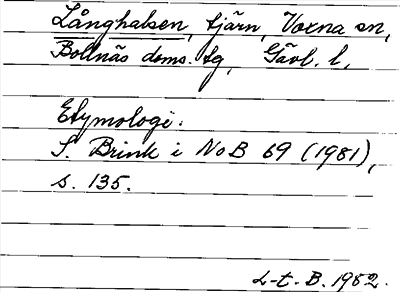 Långhalsen, tjärn, Voxna sn,
Bollnäs doms. tg, Gävl. l.
Etymologi:
S. Brink i NoB 69 (1981),
s. 135.
L-t. B. 1982.